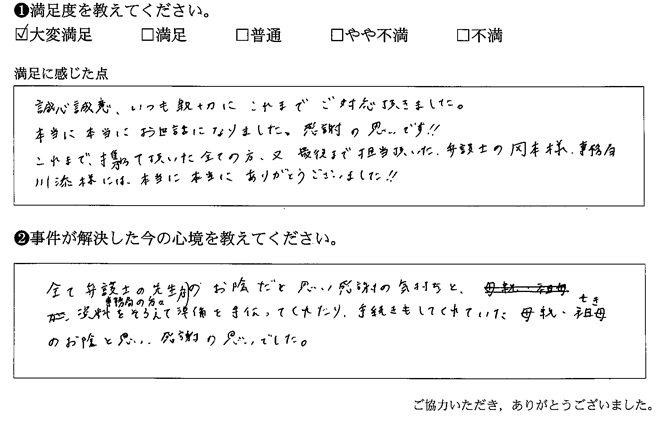 ❶満足度を教えてください。
☑大変満足 □満足 □普通 □やや不満 □不満
満足に感じた点
誠心誠意、いつも親切に これまで ご対応頂きました。
本当に 本当に お世話になりました。感謝の思いです!!
これまで、携って頂いた全ての方、又 最後まで担当頂いた、弁護士の岡本様、事務局
川添様には、本当に本当に ありがとうございました!!
❷事件が解決した今の心境を教えてください。
全て弁護士の先生方のお陰だと思い感謝の気持ちと、母親・祖母
事務局の方々
が、資料をそろえて準備を手伝ってくれたり、手続きもしてくれていた 母親・祖母
のお陰と思い、感謝の思いでした。
ご協力いただき，ありがとうございました。